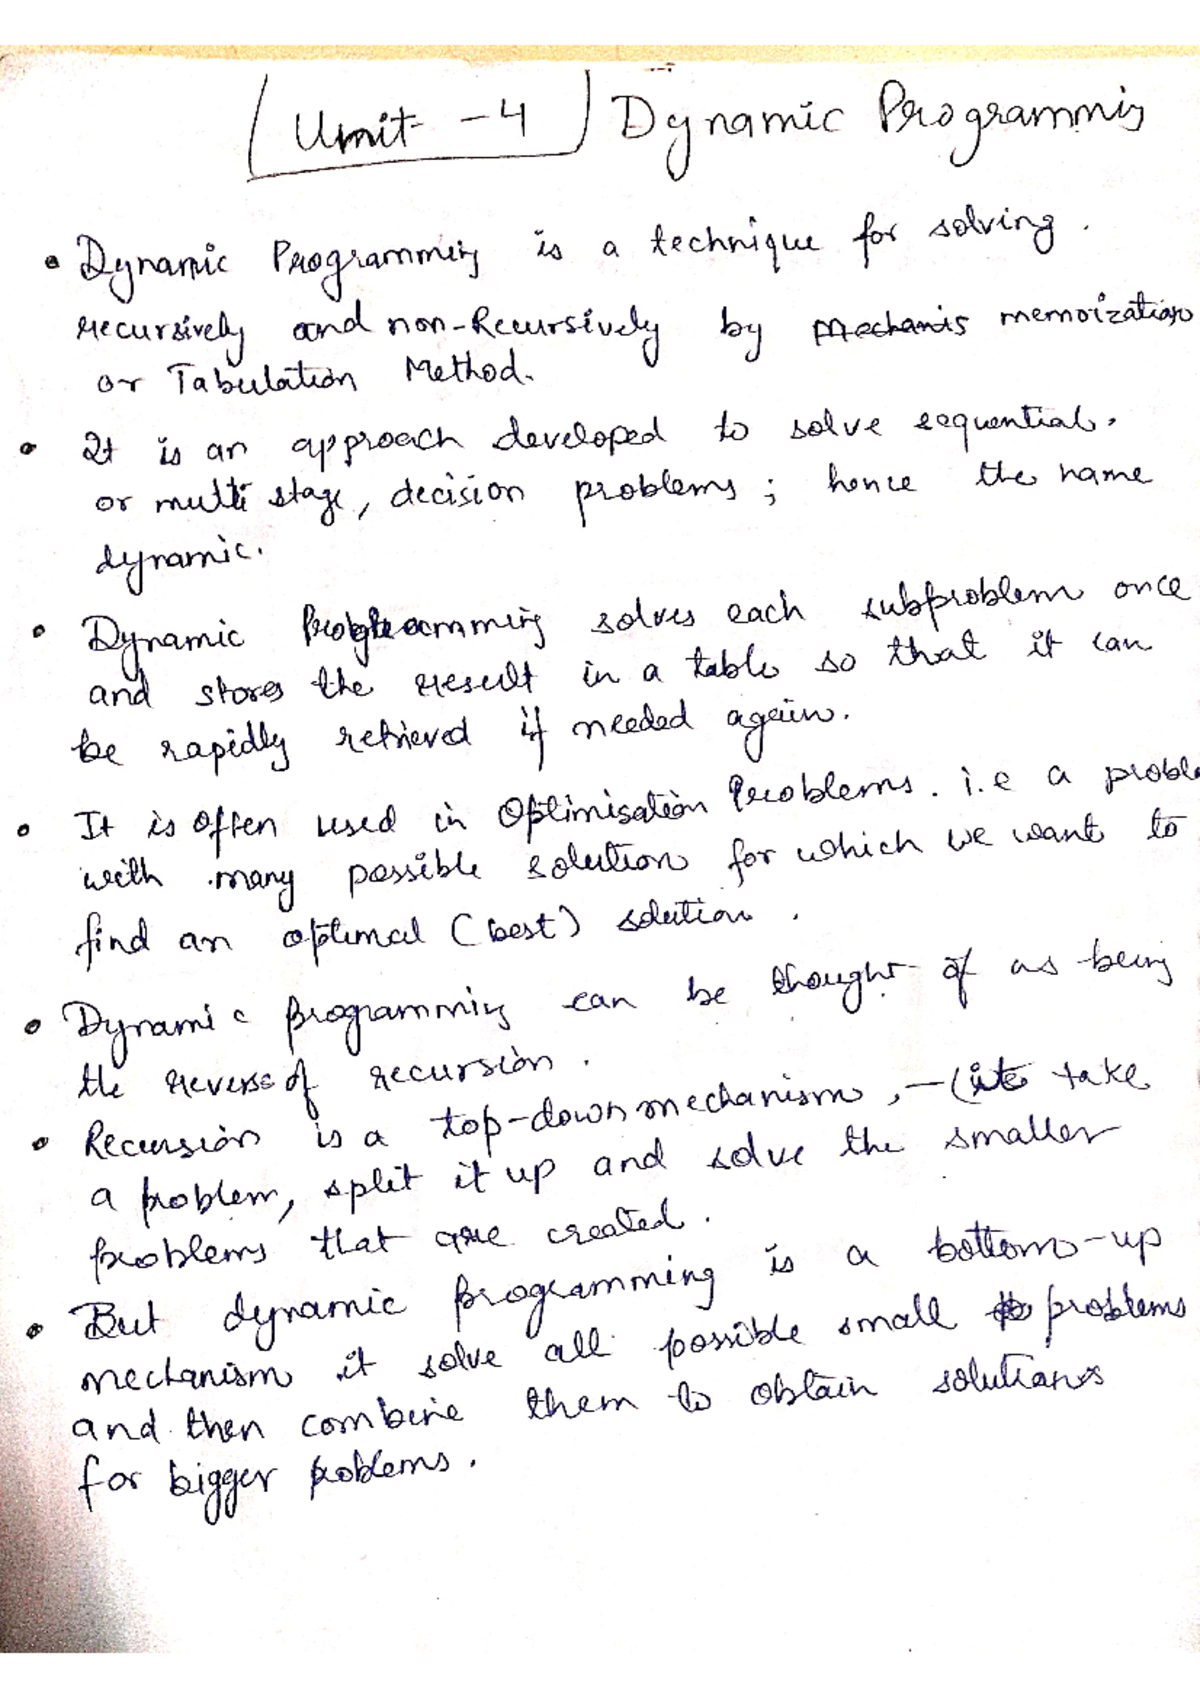 Unit - 4 Dynamic Programming
• Dynamic Programming is a technique for solving.
recursively and non-Recursively by Mechanis memoization
or Tabulation Method.
• It is an approach developed to solve sequential.
or multi stage, decision problems; hence the name
dynamic.
• Dynamic Programming solves each subproblem once
and stores the result in a table so that it can
be rapidly retrieved if needed again.
• It is often used in Optimisation Problems. i.e a proble
with many possible solution for which we want to
find an optimal (best) solution.
• Dynamic programming can be thought of as being
the reverse of recursion.
• Recursion is a top-down mechanism, - (it take
a problem, split it up and solve the smaller
problems that are created.
• But dynamic programming is a bottom-up
mechanism it solve all possible small problems
and then combine them to obtain solutions
for bigger problems.